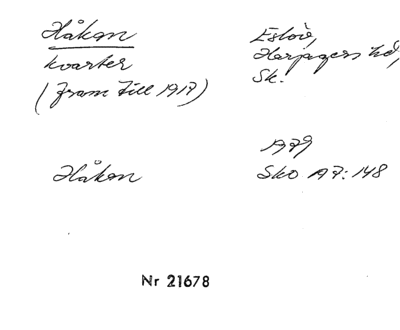 Håkan
kvarter
(fram till 1917)
Eslöv,
Harjagers hd,
Sk.
Håkan
1979
Sko A7:148
Nr 21678